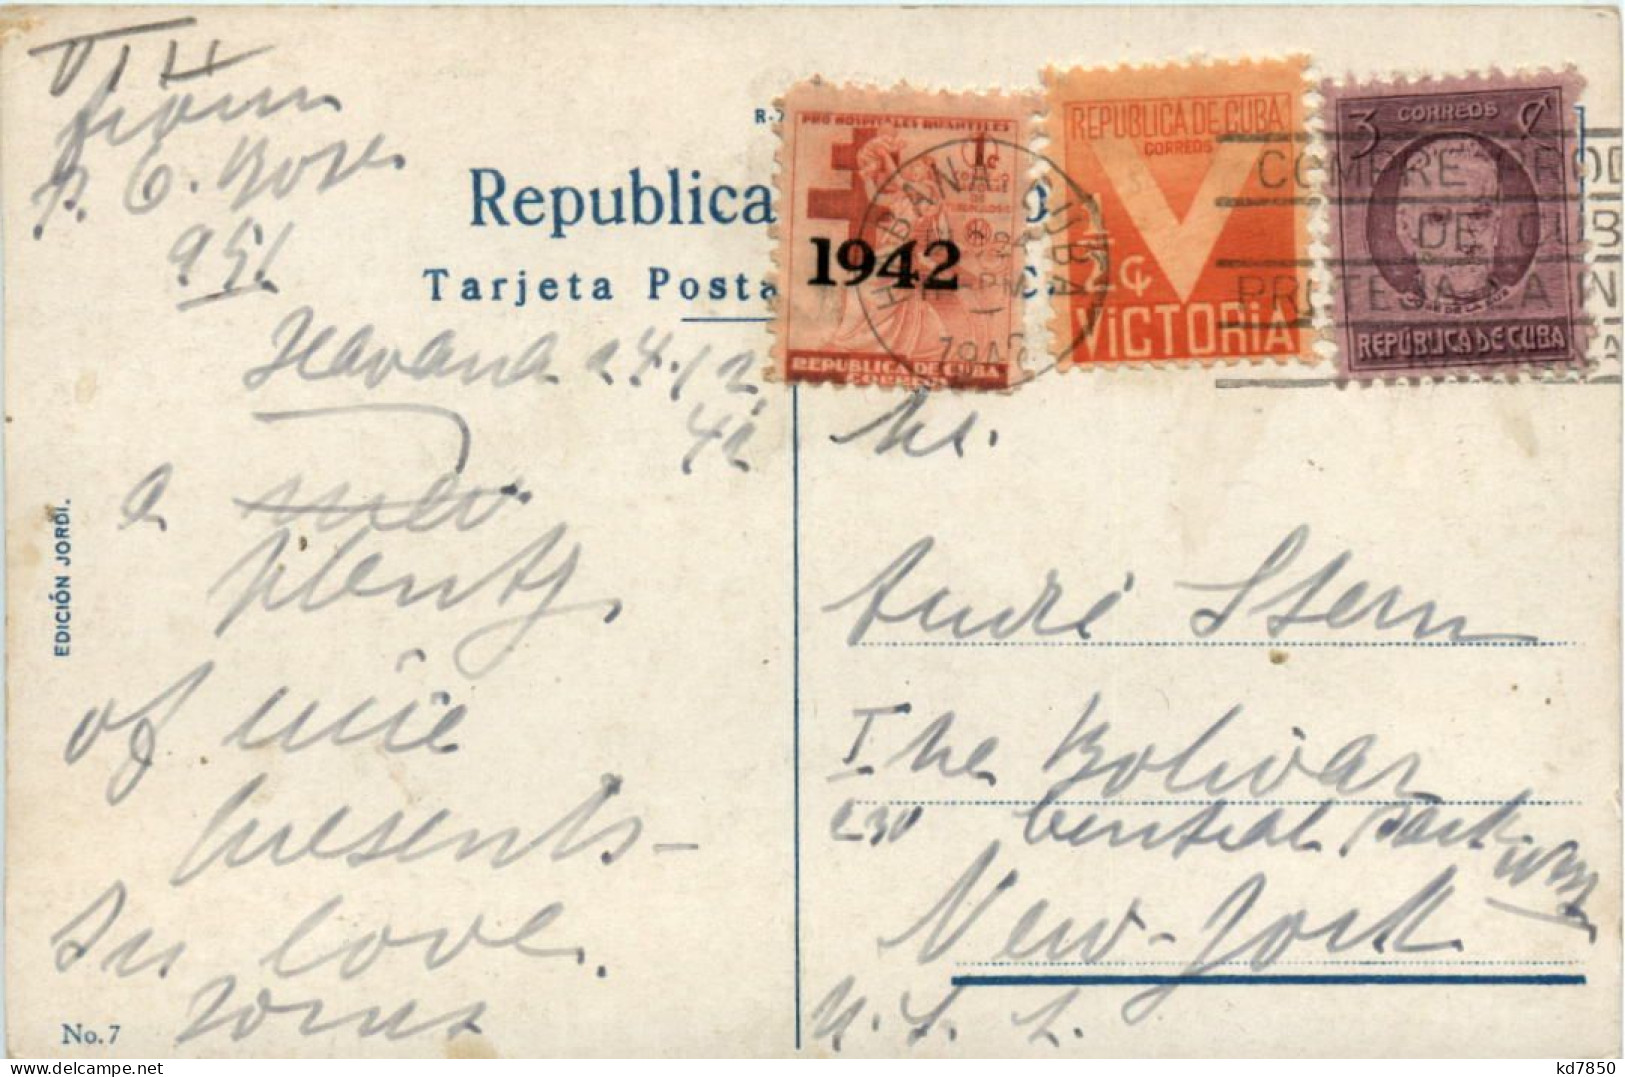 from
P. O. Box.
951
R-7
Republica
Tarjeta Posta
PRO HOSPITALES INFANTILES
1c
1942
REPUBLICA DE CUBA
CORREOS
HABANA CUBA
PM
1942
REPUBLICA DE CUBA
CORREOS
1/2 ¢
VICTORIA
3 CORREOS
REPÚBLICA DE CUBA
COMPRE PROD
DE CUB
PROTEJA LA IN
Havana 24.12.
42
a new
plenty
of nice
presents-
In love.
EDICIÓN JORDI.
No. 7
Mr.
André Stern
The Bolivar
230 Central Park
West
New-York
U.S.A.
kd7850